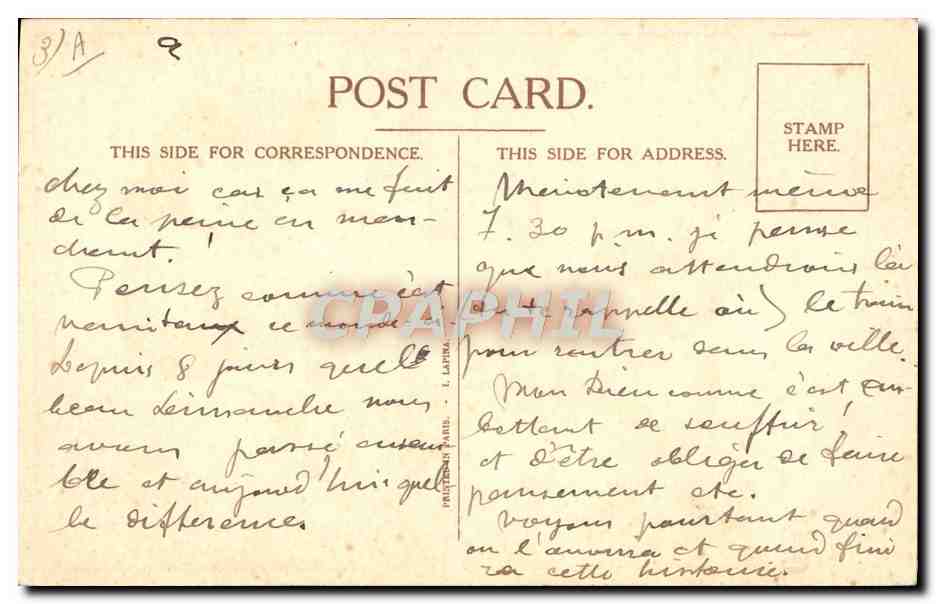 3) A
a
POST CARD.
THIS SIDE FOR CORRESPONDENCE.
chez moi car ça me fait
de la peine en mar-
chant!
Pensez comme c'est
ce monde-ci
Depuis 8 jours quelle
beau Dimanche nous
avons passé ensem-
ble et aujourd'hui quel
le difference.
PRINTED IN PARIS. I. LAPINA.
THIS SIDE FOR ADDRESS.
STAMP
HERE.
Maintenant même
7.30 p.m. je pense
que nous attendrons là
(tu te rappelle où) le train
pour rentrer dans la ville.
Mon Dieu comme c'est em-
bettant de souffrir!
et d'être obliger de faire
pansement etc.
Voyons pourtant quand
on l'ouvrira et quand fini
ra cette histoire.
CPAPHIL